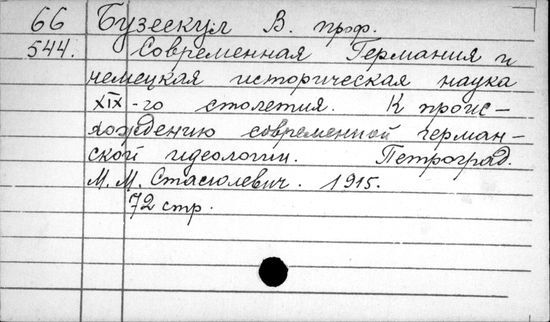 66 Бузескул В. проф.
544. Современная Германия и
немецкая историческая наука
XIX-го столетия. К проис-
хождению современной герман-
ской идеологии. Петроград.
М. М. Стасюлевич. 1915.
72 стр.